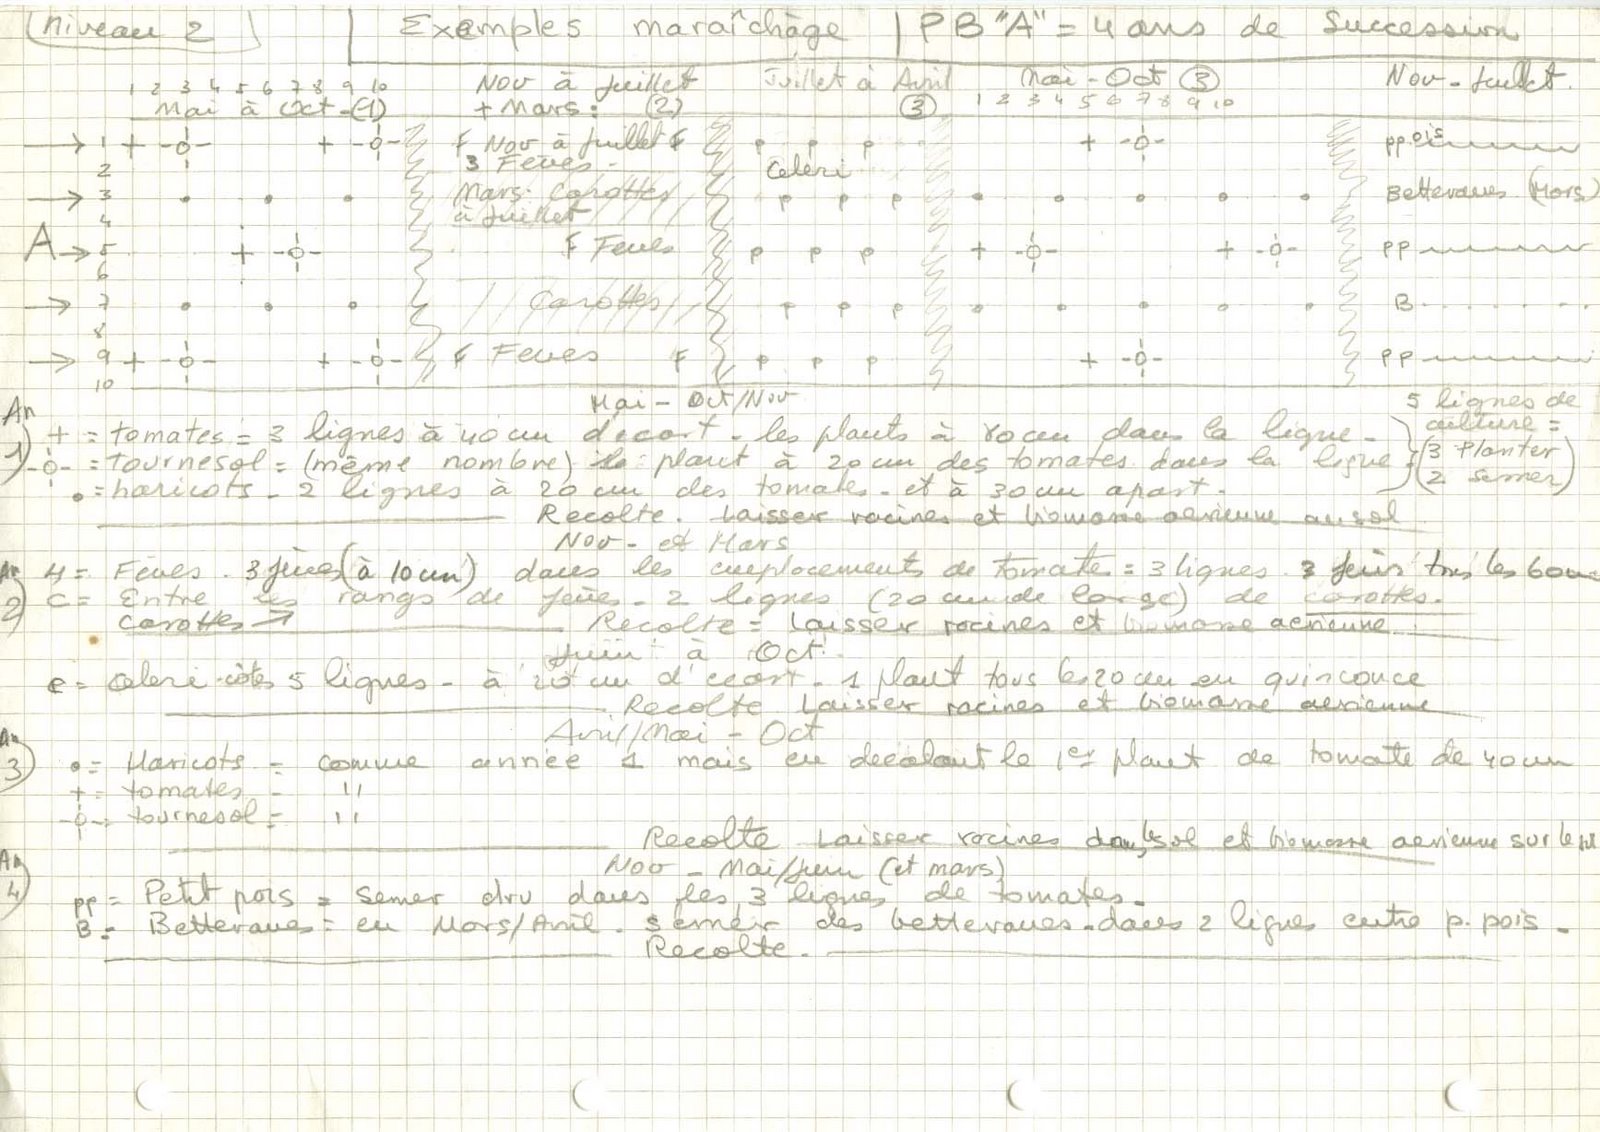 Niveau 2 Exemples maraîchage PB "A" = 4 ans de Succession
1 2 3 4 5 6 7 8 9 10 Nov à Juillet Juillet à Avril Mai - Oct (3) Nov - Juillet.
Mai à Oct - (1) + Mars: (2) (3) 1 2 3 4 5 6 7 8 9 10
1 + + F Nov à Juillet F p p p + pp ois
2 3 Feves - Celeri
3 Mars: Carottes p p p Betteraves (Mars)
4 à Juillet
A 5 + F Feves p p p + + pp
6
7 Carottes p p p B
8
9 + + F Feves F p p p + pp
10
Mai - Oct/Nov 5 lignes de
An 1) + = tomates = 3 lignes à 40 cm d'ecart - les plants à 80 cm dans la ligne - culture =
-o- = tournesol = (même nombre) plant à 20 cm des tomates dans la ligne (3 Planter
• = haricots - 2 lignes à 20 cm des tomates - et à 30 cm apart. 2 semer)
Recolte. Laisser racines et biomasse aerienne au sol
Nov - et Mars
An 2) = Feves . 3 fèves (à 10 cm) dans les emplacements de Tomates = 3 lignes . 3 tous les 60 cm
C = Entre les rangs de fèves - 2 lignes (20 cm de large) de carottes.
carottes Recolte = Laisser racines et biomasse aerienne
Juin à Oct.
c = celeri côtes 5 lignes - à 20 cm d'ecart - 1 plant tous les 20 cm en quinconce
Recolte Laisser racines et biomasse aerienne
Avril/Mai - Oct
An 3) • = Haricots = comme année 1 mais en decalant le 1er plant de tomate de 40 cm
+ = tomates = "
-o- = tournesol = "
Recolte Laisser racines dans le sol et biomasse aerienne sur le sol
Nov - Mai/Juin (et mars)
An 4) pp = Petit pois = semer dru dans les 3 lignes de tomates.
B = Betteraves = en Mars/Avril . semer des betteraves - dans 2 lignes entre p. pois -
Recolte.